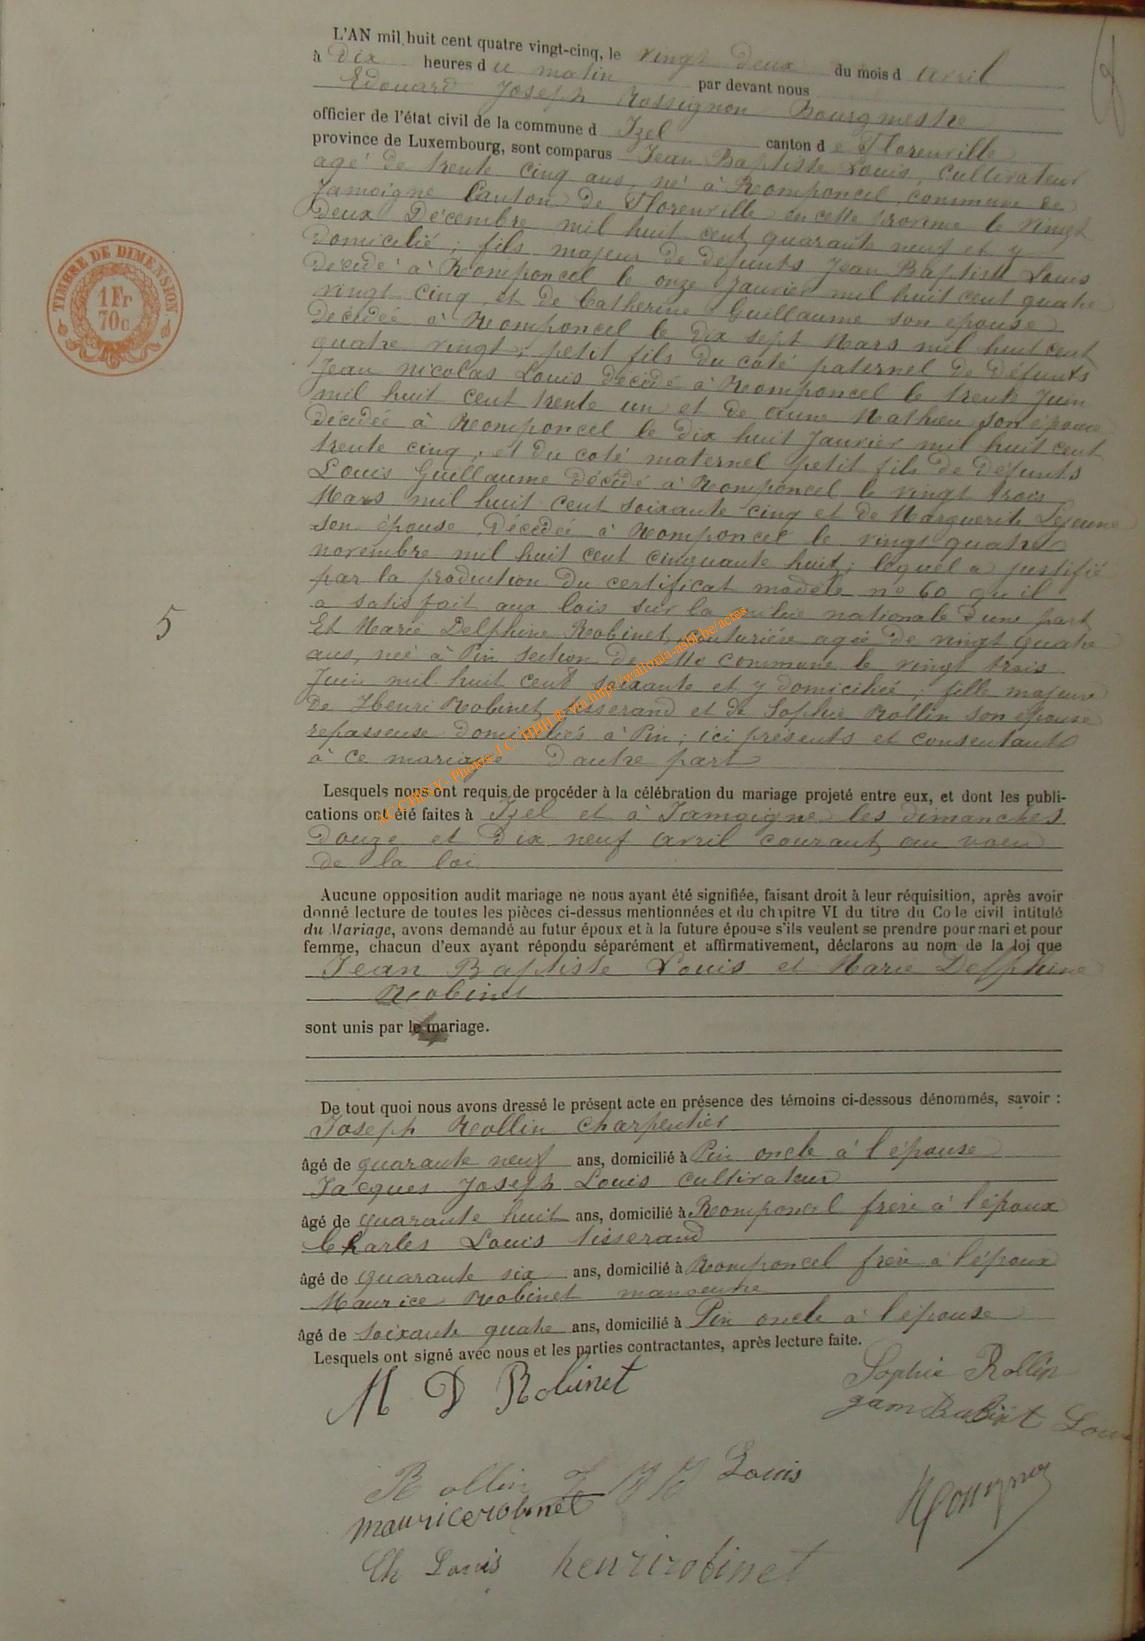 L'AN mil huit cent quatre vingt-cinq, le vingt deux du mois d avril
à Dix heures d u matin par devant nous
Edouard Joseph Rossignon Bourgmestre
officier de l'état civil de la commune d Izel canton d e Florenville
province de Luxembourg, sont comparus Jean Baptiste Louis, cultivateur
agé de trente cinq ans, né à Romponcel, commune de
Jamoigne Canton de Florenville en cette province le vingt
deux Décembre mil huit cent quarante neuf et y
domicilié; fils majeur de defunts Jean Baptiste Louis
décédé à Romponcel le onze Janvier mil huit cent quatre
vingt cinq, et de Catherine Guillaume son épouse
Decédée à Romponcel le dix sept Mars mil huit cent
quatre vingt; petit fils du coté paternel de Défunts
Jean nicolas Louis décédé à Romponcel le trente Juin
mil huit cent trente un et de Anne Mathieu son épouse
décédée à Romponcel le dix huit Janvier mil huit cent
trente cinq, et du coté maternel petit fils de Défunts
Louis Guillaume Décédé à Romponcel le vingt trois
Mars mil huit cent soixante cinq et de Marguerite Lejeune
son épouse, Décédée à Romponcel le vingt quatre
novembre mil huit cent cinquante huit; lequel a justifié
par la production du certificat modèle no 60 qu'il
a satisfait aux lois sur la milice nationale d'une part
Et Marie Delphine Robinet, couturière agée de vingt quatre
ans, née à Pin section de commune le vingt trois
Juin mil huit cent soixante et y domiciliée; fille majeure
De Henri Robinet tisserand et de Sophie Rollin son épouse
repasseuse domiciliés à Pin; ici présents et consentant
à ce mariage D'autre part
Lesquels nous ont requis de procéder à la célébration du mariage projeté entre eux, et dont les publi-
cations ont été faites à Izel et à Jamoigne les dimanches
douze et dix neuf avril courant, au voeu
de la loi
Aucune opposition audit mariage ne nous ayant été signifiée, faisant droit à leur réquisition, après avoir
donné lecture de toutes les pièces ci-dessus mentionnées et du chapitre VI du titre du Co le civil intitulé
du Mariage, avons demandé au futur époux et à la future épouse s'ils veulent se prendre pour mari et pour
femme, chacun d'eux ayant répondu séparément et affirmativement, déclarons au nom de la loi que
Jean Baptiste Louis et Marie Delphine
Robinet
sont unis par le mariage.
De tout quoi nous avons dressé le présent acte en présence des témoins ci-dessous dénommés, savoir :
Joseph Rollin charpentier
âgé de quarante neuf ans, domicilié à Pin oncle à l'épouse
Jacques Joseph Louis cultivateur
âgé de quarante huit ans, domicilié à Romponcel frère à l'époux
Charles Louis tisserand
âgé de quarante six ans, domicilié à Romponcel frère à l'époux
Maurice Robinet manoeuvre
âgé de soixante quatre ans, domicilié à Pin oncle à l'épouse
Lesquels ont signé avec nous et les parties contractantes, après lecture faite.
M D Robinet
Sophie Rollin
Rollin J
J J Louis
mauricerobinet
Rossignon
Ch Louis
henrirobinet
TIMBRE DE DIMENSION
1 Fr
70c
5